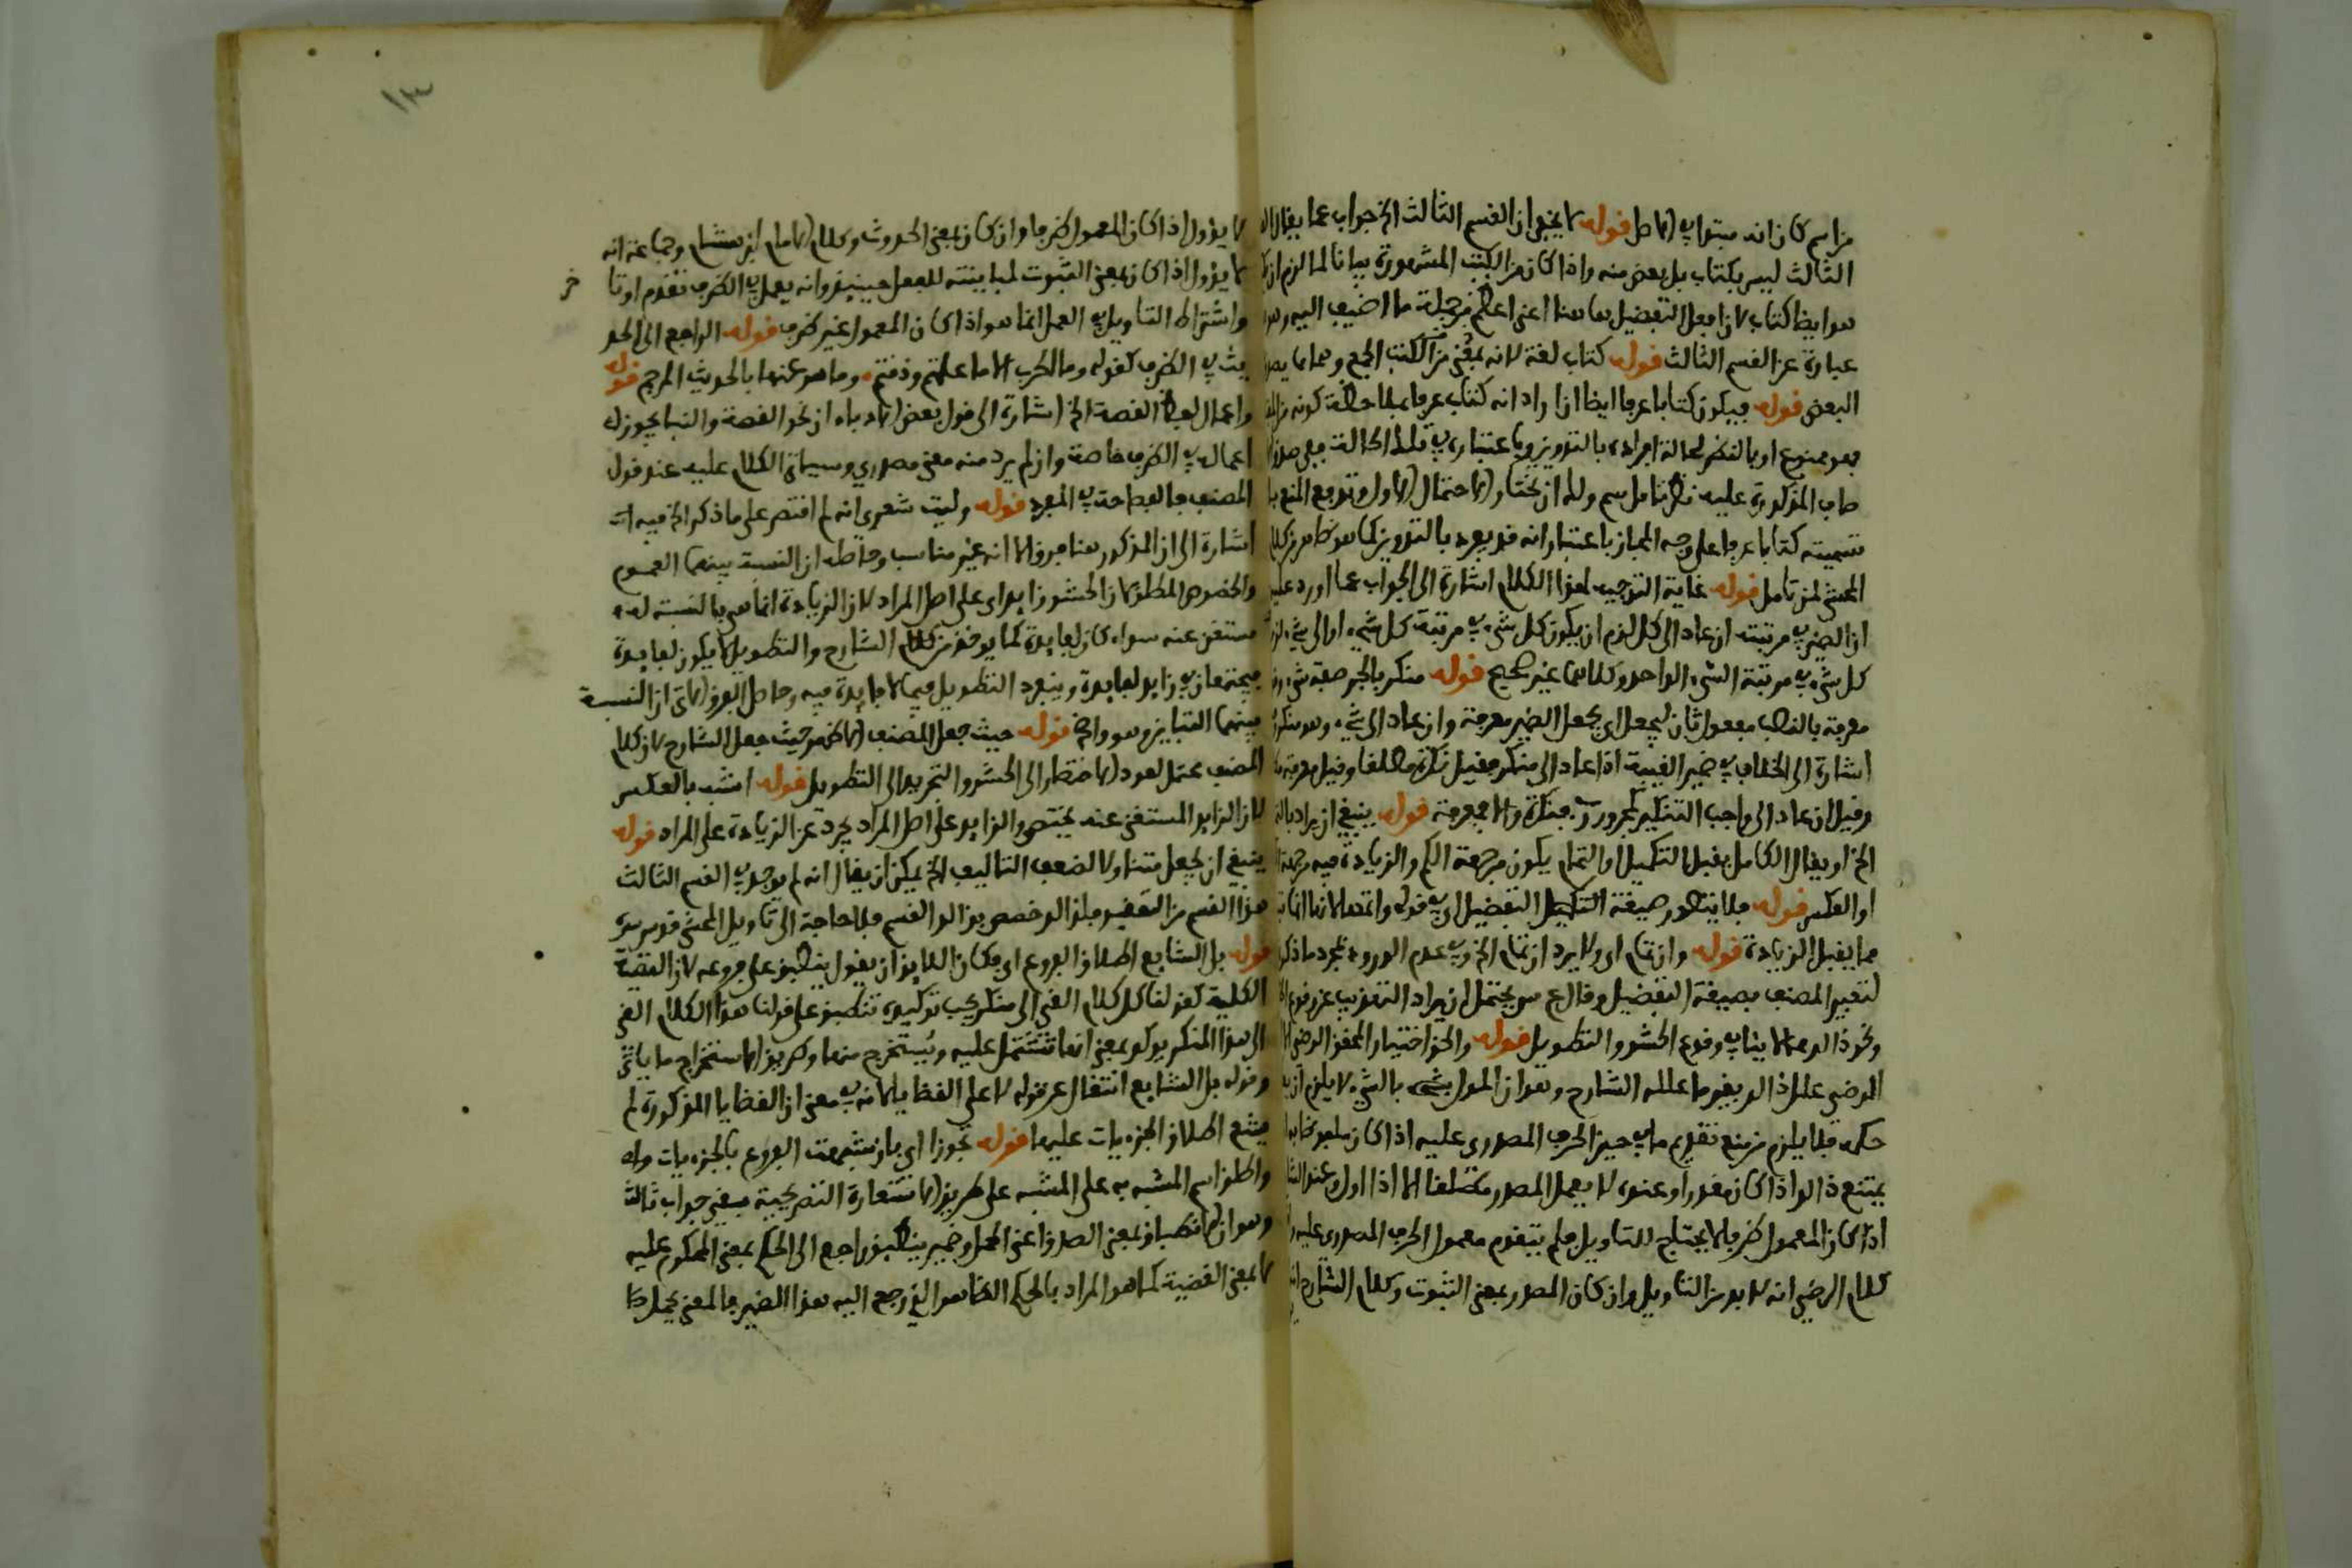 من اسم كان انه مبتدا في الاصل قوله لا يخفى ان القسم الثالث الخ جواب عما يقال
الثالث ليس بكتاب بل بعض منه واذا كان من الكتب المشهورة بيانا لما لزم ان
هو ايضا كتاب لان افعل التفضيل هاهنا اعنى اعظم من جملة ما اضيف اليه وهو
عبارة عن القسم الثالث قوله كتاب لغة لانه بمعنى من الكتب الجمع
البعض قوله فيكون كتابا عرفا ايضا ان اراد انه كتاب عرفا بملاحظة كونه
فهو ممنوع او بالنظر لحالة افراده بالتدوين وباعتباره في تلك الحالة
المذكورة عليه فتامل سم وله ان يختار الاحتمال الاول وتدفع المنع
تسميته كتابا عرفا على وجه المجاز باعتبار انه قد يفرد بالتدوين كما هو ظاهر من كلام
المحشى لمن تامل قوله غاية التوجيه لهذا الكلام اشارة الى الجواب عما اورد عليه
ان الضمير في مرتبته ان عاد الى كل لزم ان يكون كل شيء في مرتبة كل شيء او الى شيء لزم
كل شيء في مرتبة الشيء الواحد وكلاهما غير صحيح قوله منكر بالجر صفة شيء
معرفة بالنصب مفعول ثان ليجعل اى يجعل الضمير معرفة وان عاد الى شيء وهو منكر
اشارة الى الخلاف في ضمير الغيبة اذا عاد الى منكر فقيل نكرة مطلقا وقيل معرفة
وقيل ان عاد الى واجب التنكير كمجرور رب فنكرة والا فمعرفة قوله ينبغى ان يراد
الخ او يقال الكامل يقبل التكميل او التمام يكون من جهة الكم والزيادة فيه من جهة
او العكس قوله فلا يتصور صيغة التفضيل اى في قوله واتمها لانها
مما يقبل الزيادة قوله وان تمام اى ولا يرد ان تمام الخ في عدم الورود مجرد ما ذكر
لتعبير المصنف بصيغة التفضيل وقال ع س يحتمل ان يراد التقريب عن وقوع
ونحو ذلك والا ينافى وقوع الحشو والتطويل قوله والحق اختيار المحقق الرضى
الرضى علل ذلك بغير ما علله الشارح وهو ان المؤول بشيء بالشيء لا يلزم ان
حكمه فلا يلزم من منع تقديم ما في حيز الحرف المصدرى عليه اذا كان
يمتنع ذلك اذا كان مقدرا وعنده لا يعمل المصدر مطلقا الا اذا اول وعند
اذا كان المعمول ظرفا لا يحتاج للتاويل فلم يتقدم معمول الحرف المصدرى عليه
كلام الرضى انه لا بد من التاويل وان كان المصدر بمعنى الثبوت وكلام الشارح
١٣
لا يؤول اذا كان المعمول ظرفا وان كان بمعنى الحدوث وكلام الامام ابن هشام وجماعة انه
لا يؤول اذا كان بمعنى الثبوت لمباينته للفعل حينئذ وانه يعمل في الظرف تقدم او تا
خر
واشتراط التاويل في العمل انما هو اذا كان المعمول غير ظرف قوله الراجع الى الحد
وث في الظرف كقوله وما الحرب الا ما علمتم وذقتم وما هو عنها بالحديث المرجم قوله
واعمال لفظ القصة الخ اشارة الى قول بعض الادباء ان نحو القصة والنبا يجوز
اعماله في الظرف خاصة وان لم يرد منه معنى مصدرى وسياتى الكلام عليه عند قول
المصنف فالفصاحة في المفرد قوله وليت شعرى انه لم اقتصر على ما ذكر الخ فيه
اشارة الى ان المذكور هنا فرق الا انه غير مناسب وحاصله ان النسبة بينهما العموم
والخصوص المطلق لان الحشو زايد اى على اصل المراد لان الزيادة انما هى بالنسبة له
مستغن عنه سواء كان لفايدة كما يوخذ من كلام الشارح والتطويل لا يكون لفايدة
فيجتمعان في زايد لفايدة وينفرد التطويل فيما لا فايدة فيه وحاصل الفرق الاتى ان النسبة
بينهما التباين وهو واضح قوله حيث جعل المصنف الاظهر حيث جعل الشارح لان كلام
المصنف محتمل لعود الاختصار الى الحشو والتجريد الى التطويل قوله اشبه بالعكس
لان الزايد المستغنى عنه يختصر والزايد على اصل المراد يجرد عن الزيادة على المراد قوله
ينبغى ان يجعل متناولا لضعف التاليف الخ يمكن ان يقال انه لم يوجد في القسم الثالث
هذا القسم من التعقيد فلذلك خصص بذلك القسم فلا حاجة الى تاويل المحشى قدس سره
قوله بل الشايع اطلاق الفروع اى فكان اللايق ان يقول ينطبق على فروعه لان القضية
الكلية كقولنا كل كلام القى الى منكر يجب توكيده تنطبق على قولنا هذا الكلام القى
الى هذا المنكر يوكد بمعنى انها تشتمل عليه ويستخرج منها وطريق الاستخراج ما ياتى
وقوله بل الشايع انتقال عن قوله لا على القضايا لانه في معنى ان القضايا المذكورة لم
يشع اطلاق الجزءيات عليها قوله تجوزا اى بان شبهت الفروع بالجزءيات
واطلق اسم المشبه به على المشبه على طريق الاستعارة التصريحية وبقى جواب ثالث
وهو ان الانطباق بمعنى الصدق اعنى الحمل وضمير ينطبق راجع الى الحكم بمعنى المحكوم عليه
لا بمعنى القضية كما هو المراد بالحكم الظاهر الذى رجع اليه هذا الضمير فالمعنى يحمل